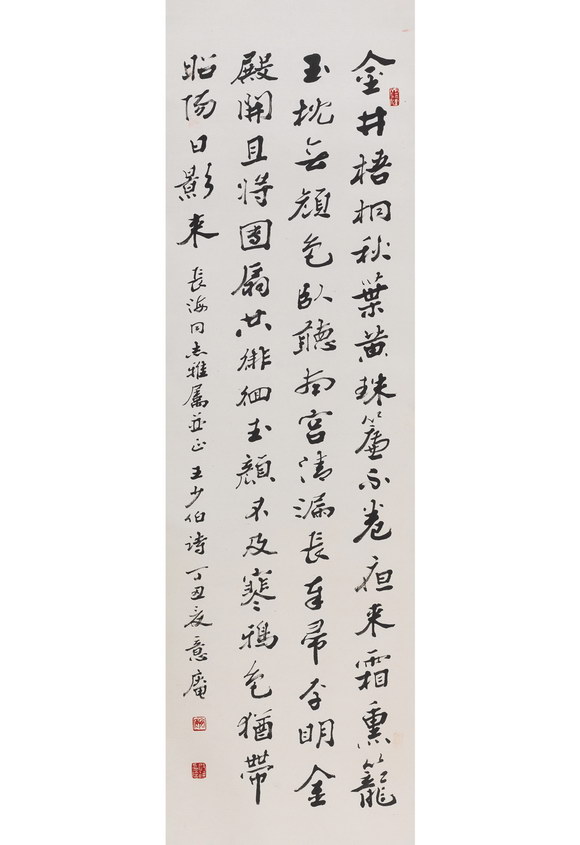 金井梧桐秋葉黄珠簾不卷夜来霜熏籠
玉枕無顔色臥聽南宮清漏長奉帚平明金
殿開且将團扇共徘徊玉顔不及寒鴉色猶帶
昭陽日影来 長海同志雅屬並正 王少伯詩 丁丑夏意庵